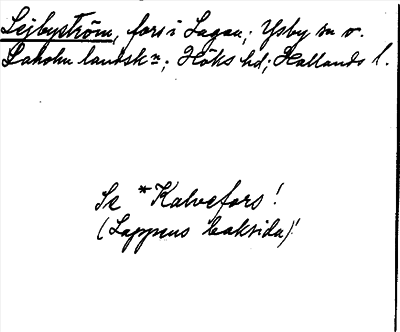 Sejbyström, fors i Lagan; Ysby sn o.
Laholm landskn; Höks hd; Hallands l.
Se *Kalvefors!
(Lappens baksida)!